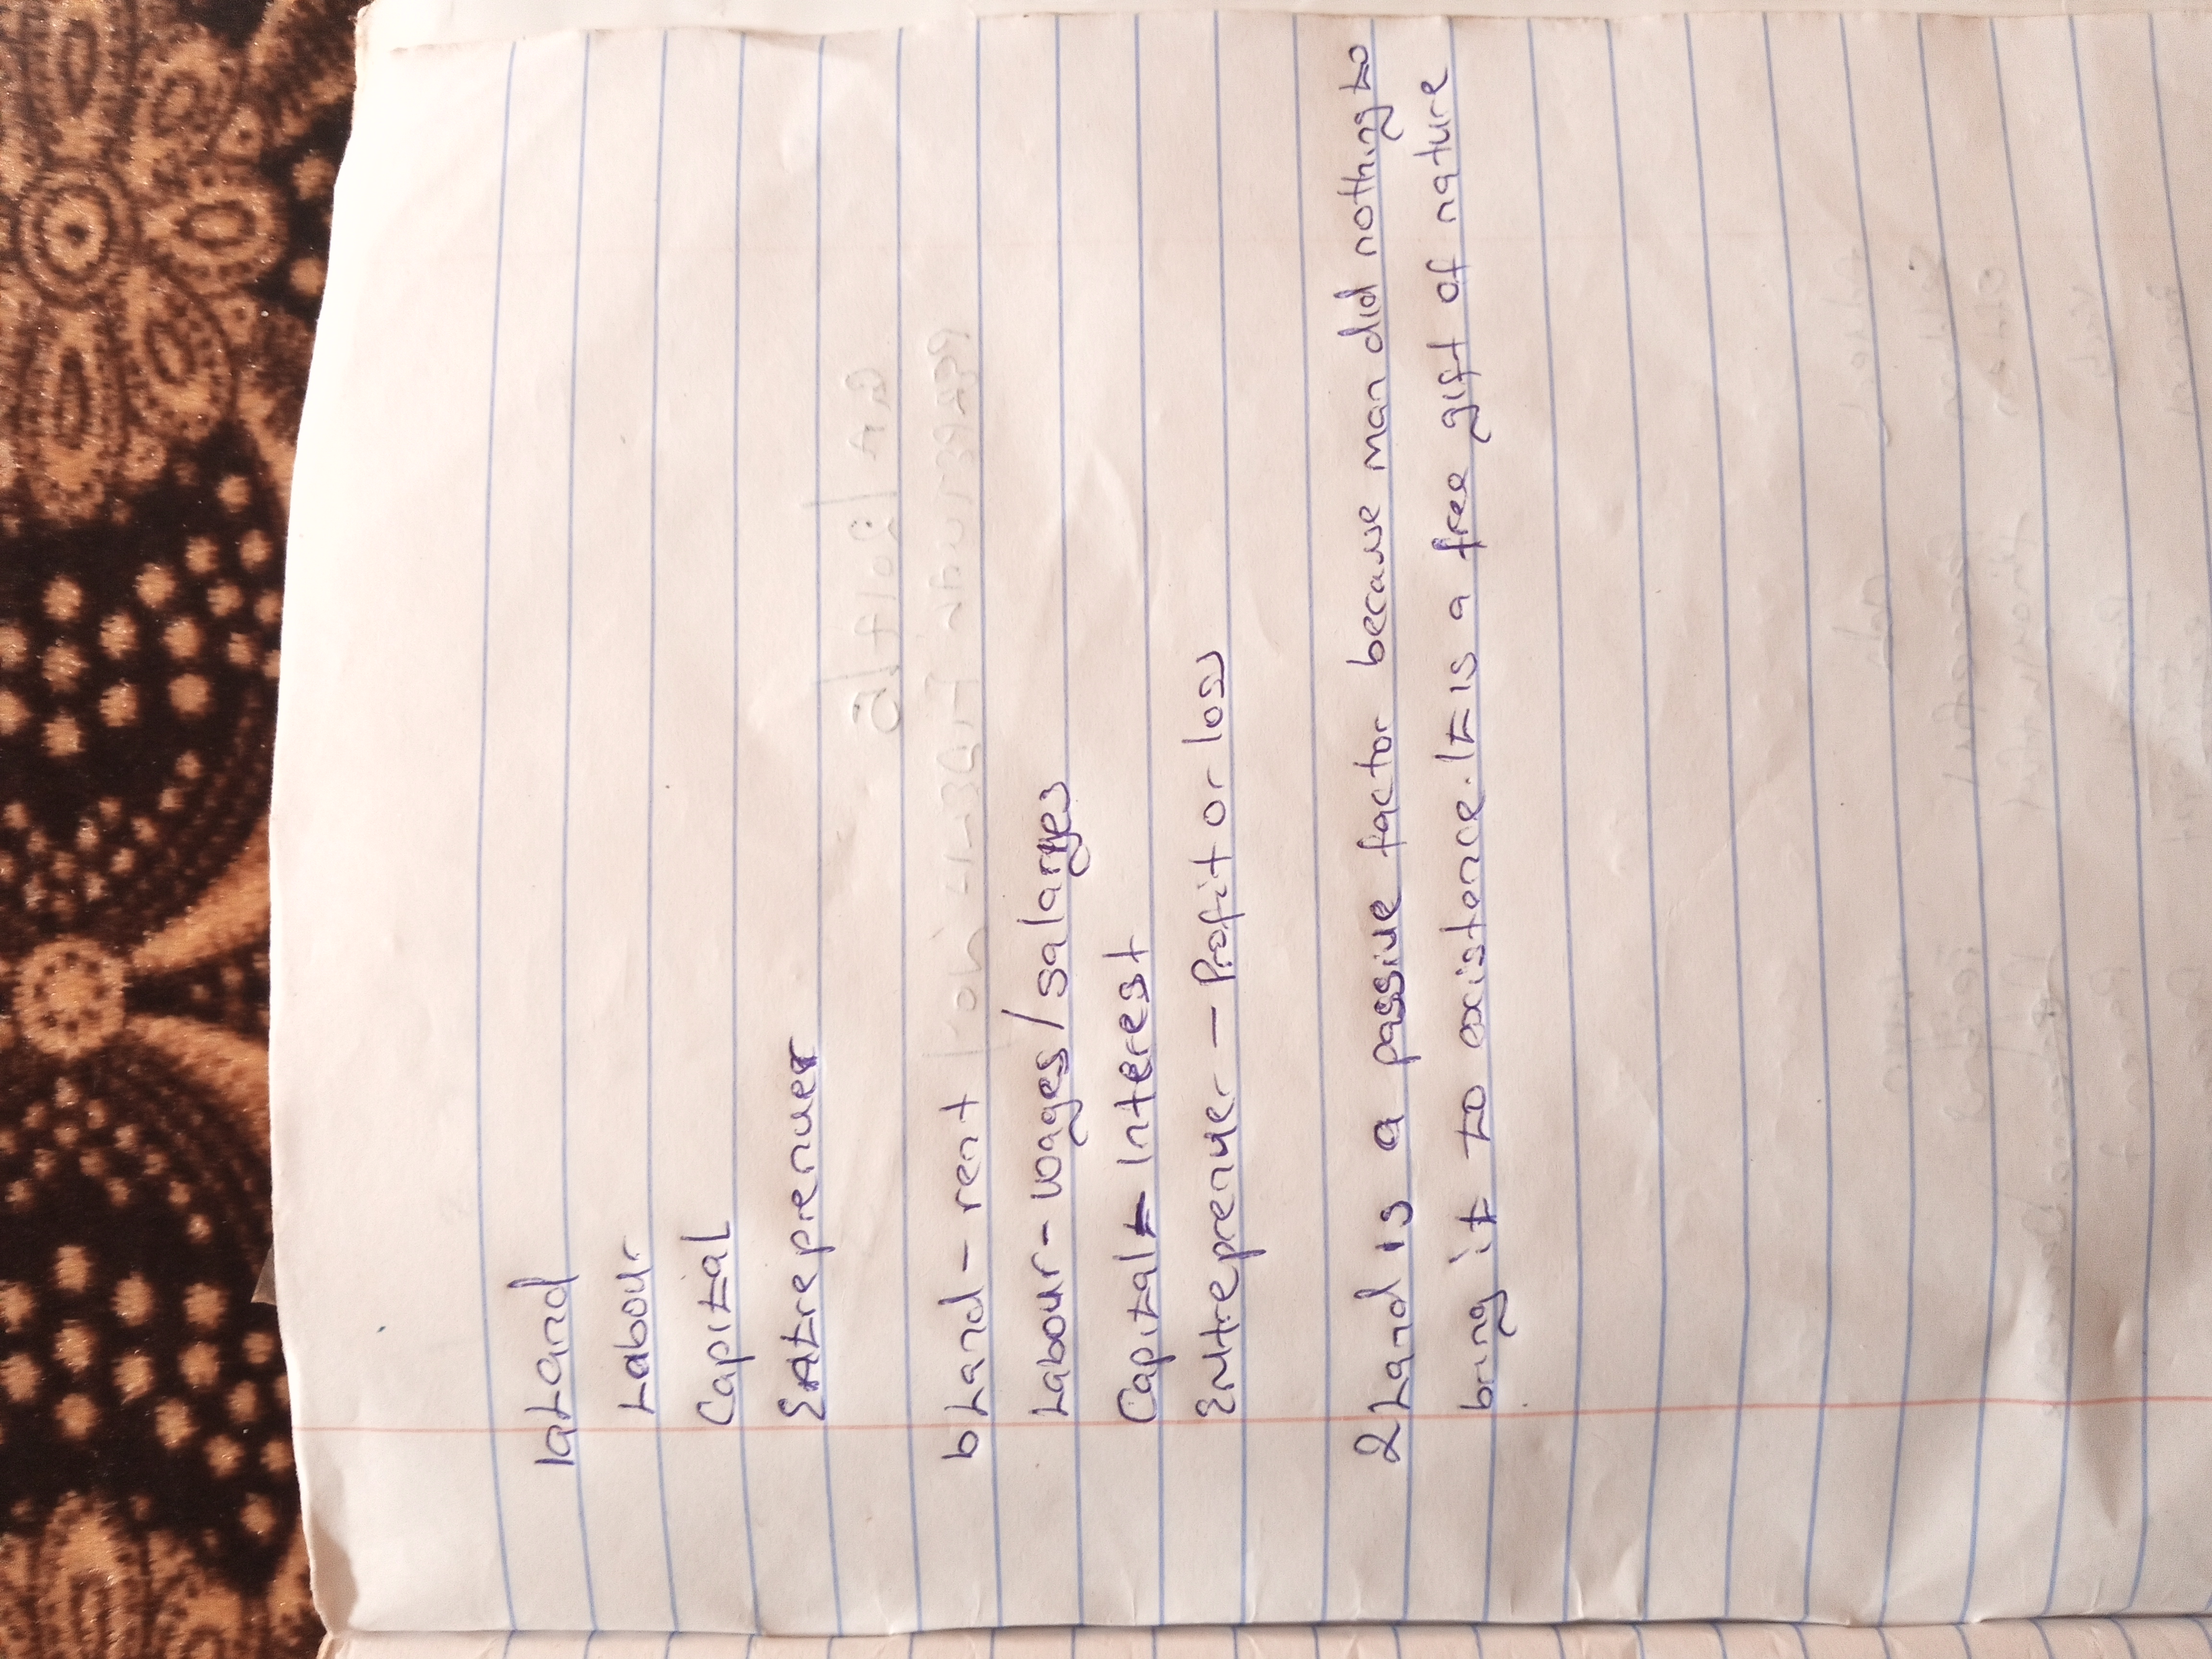 1a Land
Labour
Capital
Entreprenuer
b Land - rent
Labour - wages/salaryes
Capital - Interest
Entreprenuer - Profit or loss
2 Land is a passive factor because man did nothing to
bring it to existance. It is a free gift of nature